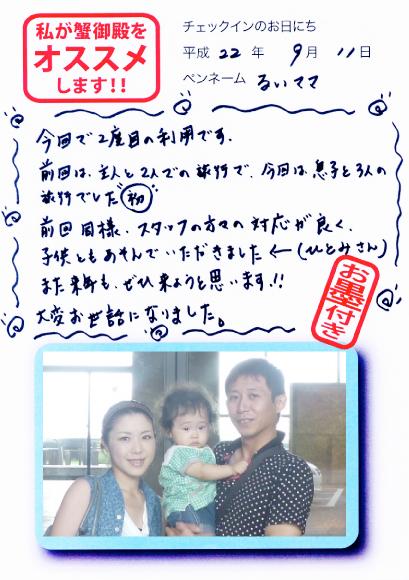 私が蟹御殿を
オススメ
します!!
チェックインのお日にち
平成 22 年 9月 11日
ペンネーム るいママ
今回で2度目の利用です。
前回は、主人と2人での旅行で、今回は息子と3人の
旅行でした 初
前回同様、スタッフの方々の対応が良く、
子供ともあそんでいただきました ← (ひとみさん)
また来年も、ぜひ来ようと思います!!
大変お世話になりました。
お墨付き